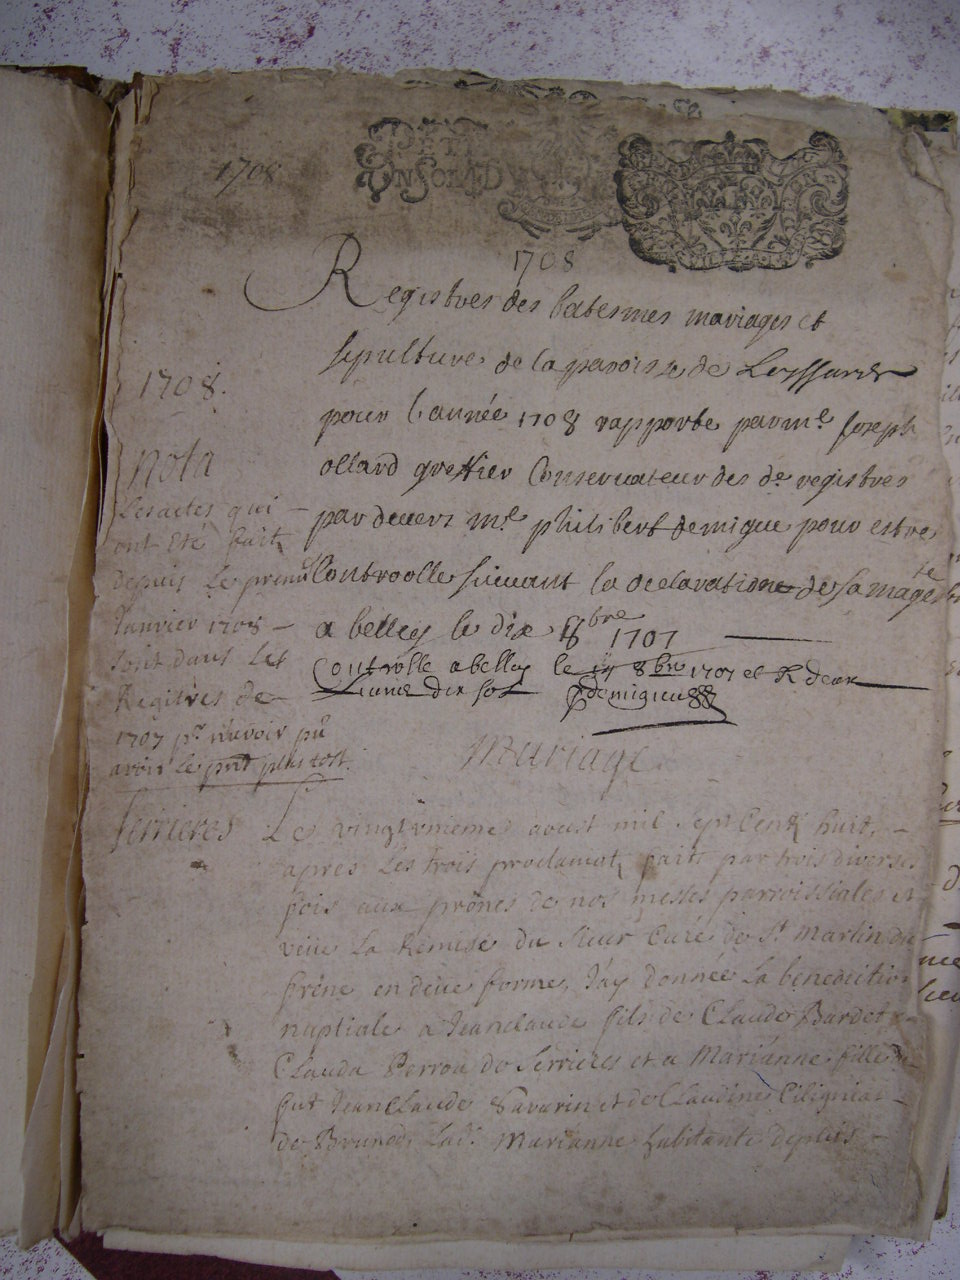 1708
PETIT
UN SOL 4 D
1708
Registres des batesmes mariages et
sepultures de la paroisse de Leyssard
pour l'année 1708 rapporte par me Joseph
ollard greffier Conservateur des de registres
par devers me philibert demigieu pour estre
Controolle suivant la declaration de sa mageste
a belley le dix 8bre 1707
Controlle a belley le 8bre 1707 et R deux
Liune dix sol demigieu
1708.
Nota
Les actes qui
ont été fait
depuis le premier
Janvier 1708
sont dans les
Regitres de
1707 pr n'avoir pû
avoir le pnt plus tost.
Mariage
Serrieres
Le vingtunieme aoust mil sept cent huit,
apres les trois proclamat faits par trois diverses
fois aux prônes de nos messes parroissiales et
veüe la Remise du sieur Curé de St Martin du
frêne en deüe forme, J'ay donnée la benediction
nuptiale a Jeanclaude fils de Claude Bardet
Clauda Perrou de Serrieres et a Marianne fille
fut JeanClaude Savarin et de Claudine
de Marianne habitante depuis